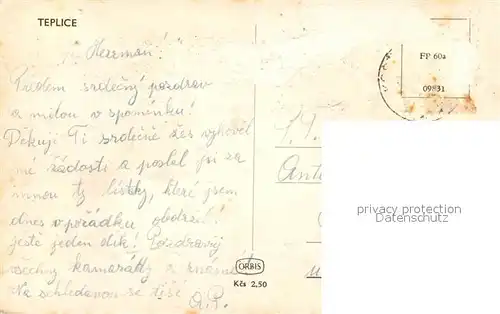 TEPLICE
Herman!
Předem srdečný pozdrav
a milou v spomínku!
Děkuji Ti srdečně žes vyhověl
mé žádosti a poslal jsi za
mnou ty lístky, které jsem
dnes v pořádku obdržel!
ještě jeden dík! Pozdravuj
všechny kamarády a známé
Na schledanou se těší
A.P.
FP 60a
09831
Anto
privacy protection
Datenschutz
ORBIS
Kčs 2,50